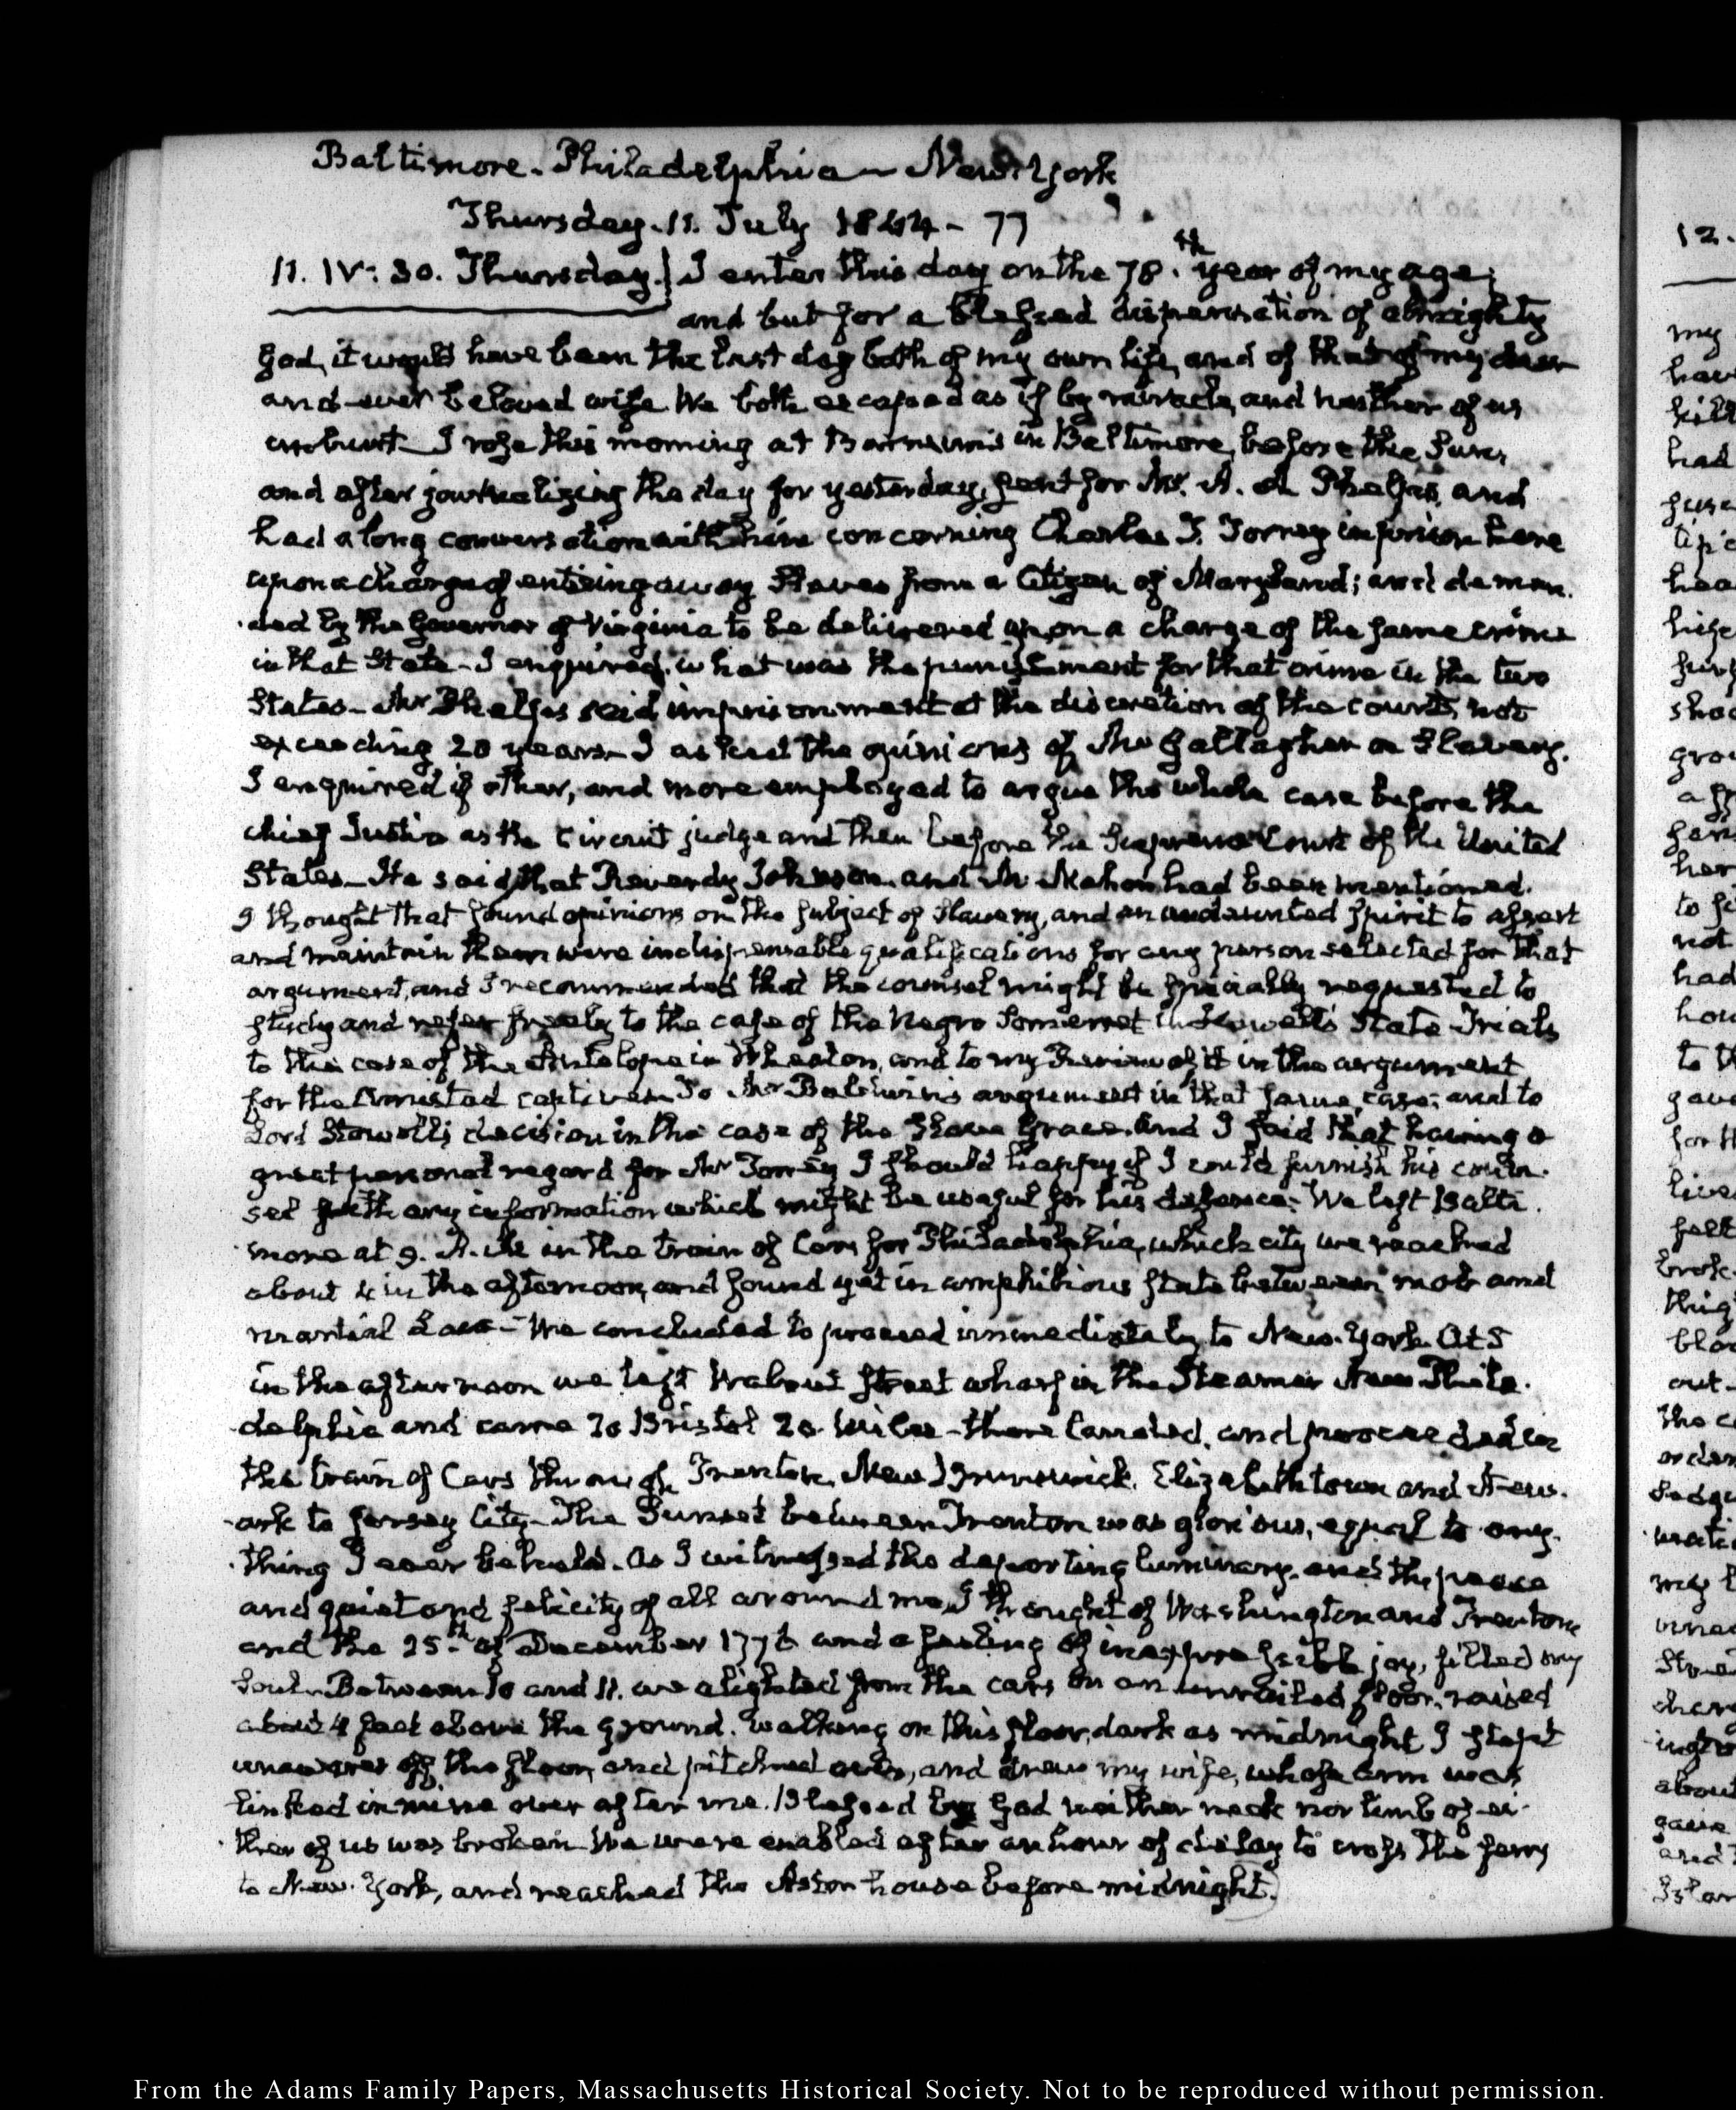 Baltimore. Philadelphia — New York
Thursday. 11. July 1844 - 77
11. IV: 30. Thursday. I enter this day on the 78.th year of my age;
and but for a blessed dispensation of almighty
God, it would have been the last day both of my own life, and of that of my dear
and ever beloved wife We both escaped as if by miracle, and neither of us
unhurt — I rose this morning at Barnum's in Baltimore, before the Sun,
and after journalizing the day for yesterday, sent for Mr. A. A. Phelps, and
had a long conversation with him concerning Charles T. Torrey in prison here
upon a charge of enticing away Slaves from a Citizen of Maryland; and deman-
ded by the Governor of Virginia to be delivered up, on a charge of the same crime
in that State — I enquired what was the punishment for that crime in the two
States — Mr Phelps said, imprisonment at the discretion of the courts, not
exceeding 20 years — I asked the opinions of Mr Gallagher on Slavery.
I enquired if other, and more employed to argue the whole case before the
chief Justice as the Circuit judge and then before the Supreme Court of the United
States — He said that Reverdy Johnson and Mc Mahon had been mentioned.
I thought that sound opinions on the subject of Slavery, and an undaunted spirit to assert
and maintain them were indispensable qualifications for any person selected for that
argument, and I recommended that the counsel might be specially requested to
study and refer freely to the case of the Negro Somerset in Howell's State Trials
to the case of the Antelope in Wheaton, and to my Review of it in the argument
for the Amistad captives — To Mr Baldwin's argument in that same case; and to
Lord Stowell's decision in the case of the Slave Grace. And I said that having a
great personal regard for Mr Torrey I should happy if I could furnish his coun-
sel with any information which might be useful for his defence. We left Balti-
more at 9. A.M. in the train of Cars for Philadelphia, which city we reached
about 4 in the afternoon, and found yet in amphibious state between mob and
martial Law — We concluded to proceed immediately to New-York. At 5
in the afternoon we left Walnut Street wharf in the Steamer New Phila-
delphia and came to Bristol 20 miles — there landed, and proceeded in
the train of Cars through Trenton, New Brunswick, Elizabethtown and New-
ark to Jersey City — The Sunset between Trenton was glorious, equal to any-
thing I ever beheld. As I witnessed the departing luminary, and the peace
and quiet and felicity of all around me, I thought of Washington and Trenton
and the 25.th of December 1776 and a feeling of inexpressible joy, filled my
Soul — Between 10 and 11. we alighted from the cars on an unrailed floor, raised
about 4 feet above the ground. Walking on this floor, dark as midnight I stept
unawares off the floor, and pitched over, and drew my wife, whose arm was
linked in mine over after me. Blessed be God neither neck nor limb of ei-
ther of us was broken We were enabled after an hour of delay to cross the ferry
to New-York, and reached the Astor house before midnight.
12.
From the Adams Family Papers, Massachusetts Historical Society. Not to be reproduced without permission.